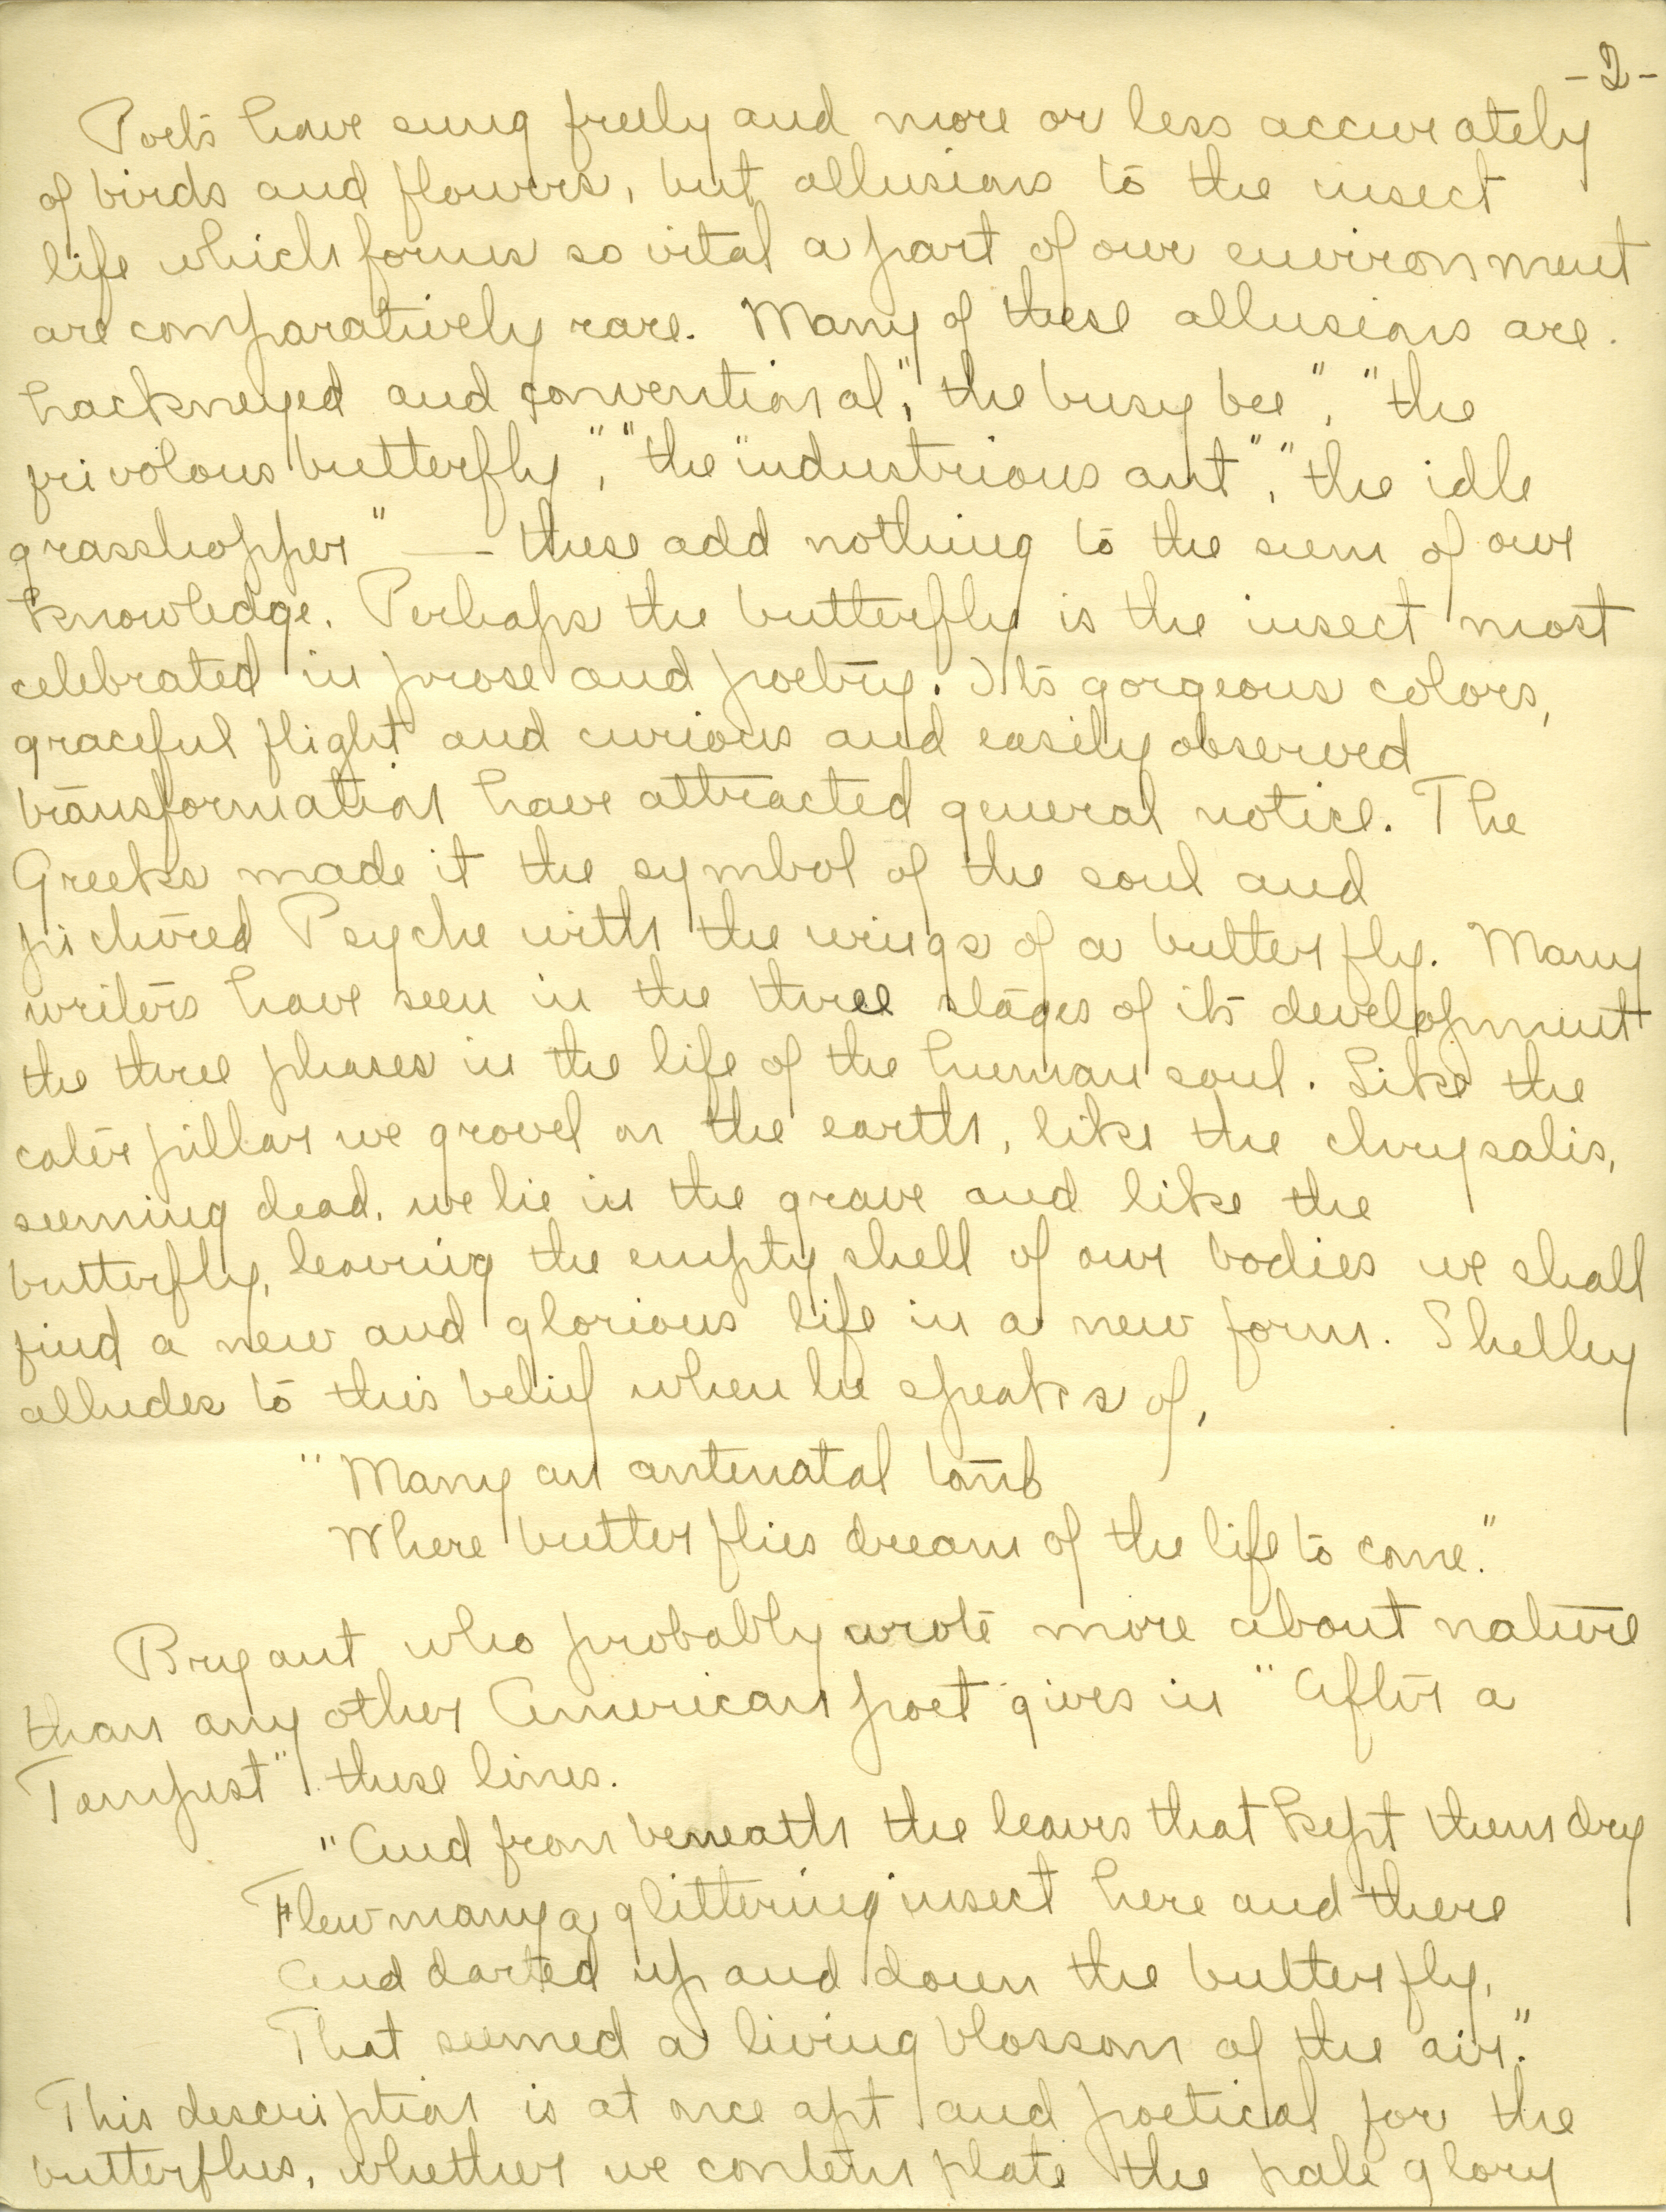 -2-
Poets have sung freely and more or less accurately
of birds and flowers, but allusions to the insect
life which forms so vital a part of our environment
are comparatively rare. Many of these allusions are
hackneyed and conventional, "the busy bee", "the
frivolous butterfly", "the industrious ant", "the idle
grasshopper" — these add nothing to the sum of our
knowledge. Perhaps the butterfly is the insect most
celebrated in prose and poetry. Its gorgeous colors,
graceful flight and curious and easily observed
transformation have attracted general notice. The
Greeks made it the symbol of the soul and
pictured Psyche with the wings of a butterfly. Many
writers have seen in the three stages of its development
the three phases in the life of the human soul. Like the
caterpillar we grovel on the earth, like the chrysalis,
seeming dead, we lie in the grave and like the
butterfly, leaving the empty shell of our bodies we shall
find a new and glorious life in a new form. Shelley
alludes to this belief when he speaks of,
"Many an antenatal tomb
Where butterflies dream of the life to come."
Bryant who probably wrote more about nature
than any other American poet gives in "After a
Tempest" these lines.
"And from beneath the leaves that kept them dry
Flew many a glittering insect here and there
And darted up and down the butterfly,
That seemed a living blossom of the air."
This description is at once apt and poetical for the
butterflies, whether we contemplate the pale glory